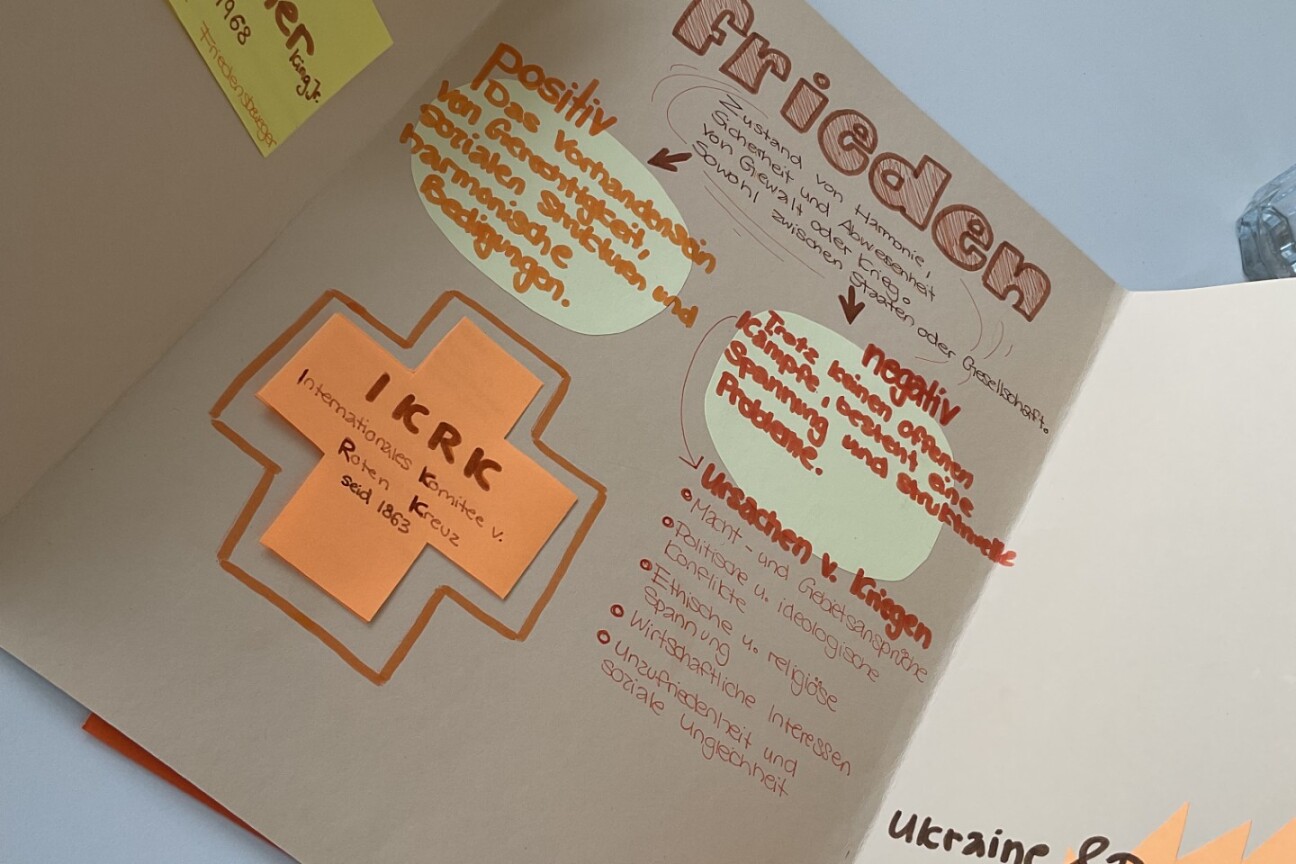 er
King Jr.
1968
Friedensbürger
Frieden
Zustand von Harmonie,
Sicherheit und Abwesenheit
von Gewalt oder Krieg.
Sowohl zwischen Staaten oder Gesellschaft.
positiv
Das Vorhandensein
von Gerechtigkeit,
sozialen Strukturen und
harmonische
Bedigungen.
negativ
Trotz keinen offenen
Kämpfe, besteht eine
Spannung und strukturelle
Probleme.
IKRK
Internationales Komitee v.
Roten Kreuz
seid 1863
Ursachen v. Kriegen
Macht- und Gebietsansprüche
Politische u. ideologische
Konflikte
Ethische u. religiöse
Spannung
Wirtschaftliche Interessen
Unzufriedenheit und
soziale Unglechheit
Ukraine &